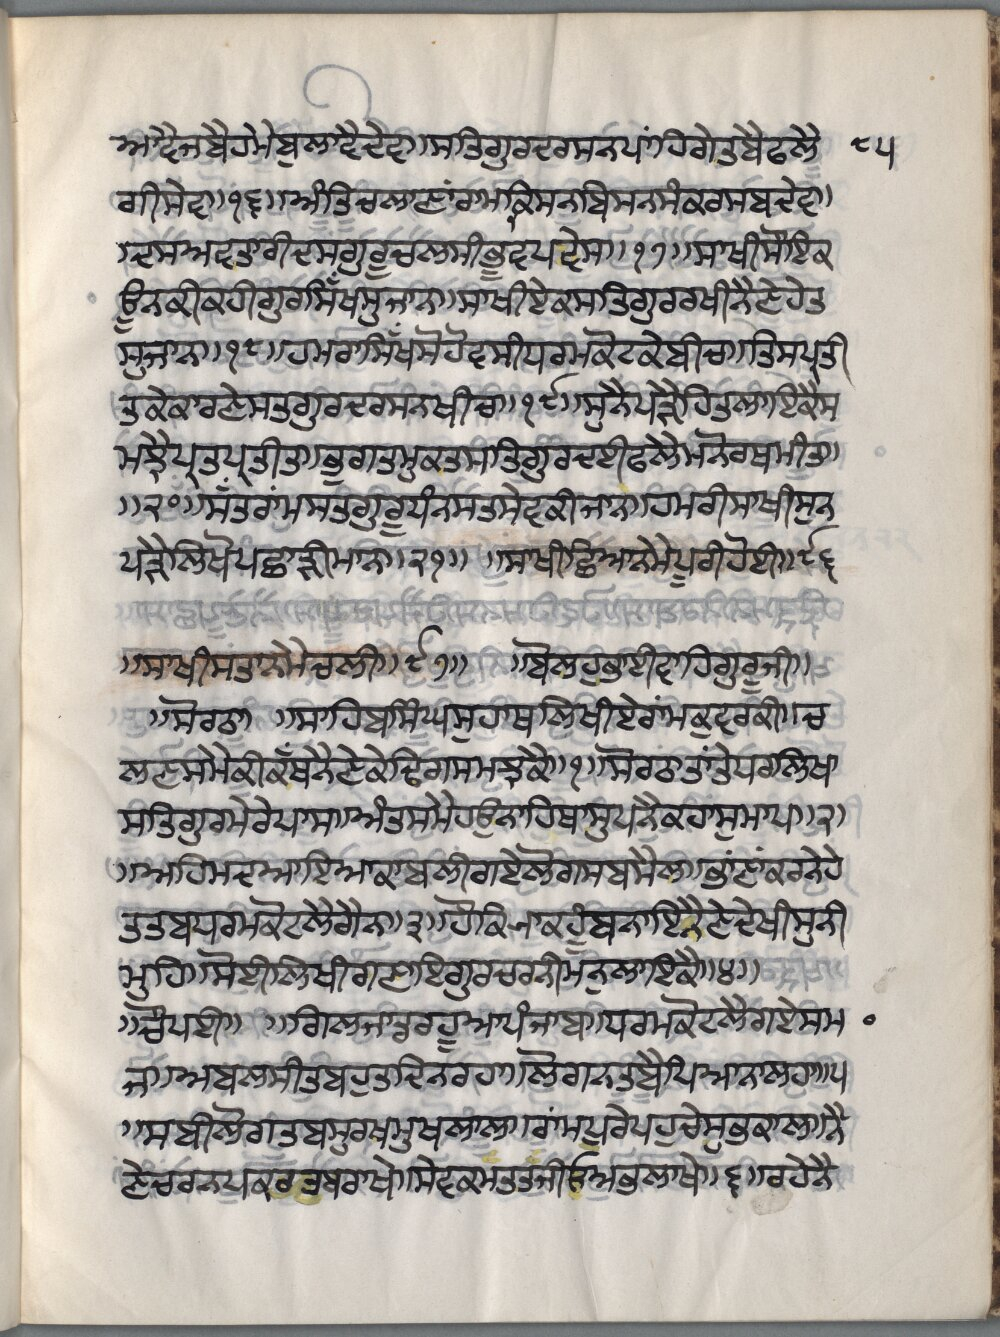 ਆਵੈਜਬੈਹਮੇਬੁਲਾਵੈਦੇਵ॥ਸਤਿਗੁਰਦਰਸਨਪਾਂਹਿਗੇਤੁਬੈਫਲੈ ੯੫
ਗੀਸੇਵ॥੧੬॥ਅੰਤਿਚਲਾਣਾਂਰਾਮਕ੍ਰਿਸਨਾਬਿਸਨਸੰਕਰਸਬਦੇਵ॥
ਦਸਅਵਤਾਰੀਦਸਗੁਰੂਚਲਸੀਭੂਵਪਵੇਸ॥੧੭॥ਸਾਖੀਸੌਇਕ
ਊਨਕੀਕਹੀਗੁਰਸਿੱਖਸੁਜਾਨ॥ਸਾਖੀਏਕਸਤਿਗੁਰਰਖੀਨੈਣੇਹੇਤ
ਸੁਜਾਨ॥੧੮॥ਹਮਰਾਸਿੱਖਸੋਹੋਵਸੀਪਰਮਕੋਟਕੇਬੀਚ॥ਤਿਸਪ੍ਰਤੀ
ਤਕੇਕਾਰਣੇਸਤਗੁਰਦਰਸਨਖੀਚ॥੧੯॥ਸੁਨੈਪੜੈਹਿਤੁਲਾਇਕੈਸ
ਮਝੈਪ੍ਰਤਪ੍ਰਤੀਤ॥ਭੁਗਤਮੁਕਤਸਤਿਗੁਰਦਈਫਲੈਮਨੋਰਥਮੀਤ॥
॥੨੦॥ਸੰਤਰਾਂਮਸਤਿਗੁਰੂਪੰਨਸਤਸੇਵਕੀਜਾਨ॥ਹਮਰੀਸਾਖੀਸੁਨ
ਪੜੈਲਿਖੋਪਛਾੜੀਮਾਨ॥੨੧॥ ॥ਸਾਖੀਛਿਆਨਮੇਪੂਰੀਹੋਈ॥੯੬
॥ਸਾਖੀਸਤਾਨਮੈਚਲੀ॥੯੭॥ ॥ਬੋਲਹੁਭਾਈਵਾਹਿਗੁਰੂਜੀ॥
॥ਸੋਰਠਾ ॥ਸਾਹਿਬਸਿੰਘਸੁਹਾਥਲਿਖੀਏਰਾਂਮਕੁਵਰਕੀ॥ਚ
ਲਣਸਮੈਕੀਕੱਥਨੈਣੇਕੇਢਿਗਸਮਝਕੈ॥੧॥ਸੋਰਠਾਤਾਂਤੇਪਰਲਿਖਾ
ਸਤਿਗੁਰਮੇਰੇਪਾਸ॥ਅੰਤਸਮੈਹਊਨਾਹਿਥਾਸੁਪਨੈਕਹਾਸੁਮਾਪ॥੨॥
॥ਅਹਿਮਦਆਇਆਕਾਬਲੀਗਏਲੋਗਸਬਮੇਲ॥ਭਾਂਣਾਂਕਰਨੇਹੇ
ਤਤਬਪਰਮਕੋਟਲੈਗੈਨ॥੩॥ਹੌਕਿਆਕਹੂੰਬਨਾਇਨੈਣੇਦੇਖੀਸੁਨੀ
ਮੁਹਿ॥ਸੋਈਲਿਖੀਗਣਾਇਗੁਰਚਰਨੀਮੰਨੁਲਾਇਕੈ॥੪॥
॥ਚੌਪਈ॥ ॥ਗਿਲਜਾਤੁਰਹੂਆਪੰਜਾਬਾ॥ਪਰਮਕੋਟਲੈਗਏਸਮ
ਜ॥ਅਬਲਸੀਤਬਹੁਤਦਿਨਰਹਾ॥ਲੋਗਨਤੁਬੈਪਿਆਨਾਲਹਾ॥੫
॥ਸਬੀਲੋਗਤਬਸੁਰਖਮੁਖਲਾਲ॥ਰਾਂਮਪੁਰੇਪਹੁਚੇਸੁਭਕਾਲ॥ਨੈ
ਣੇਚਰਨਪਕਰਤਬਰਾਖੇ॥ਸੇਵਕਮਤਤਜੀਓਅਭਲਾਖੇ॥੬॥ਰਹੇਨੈ